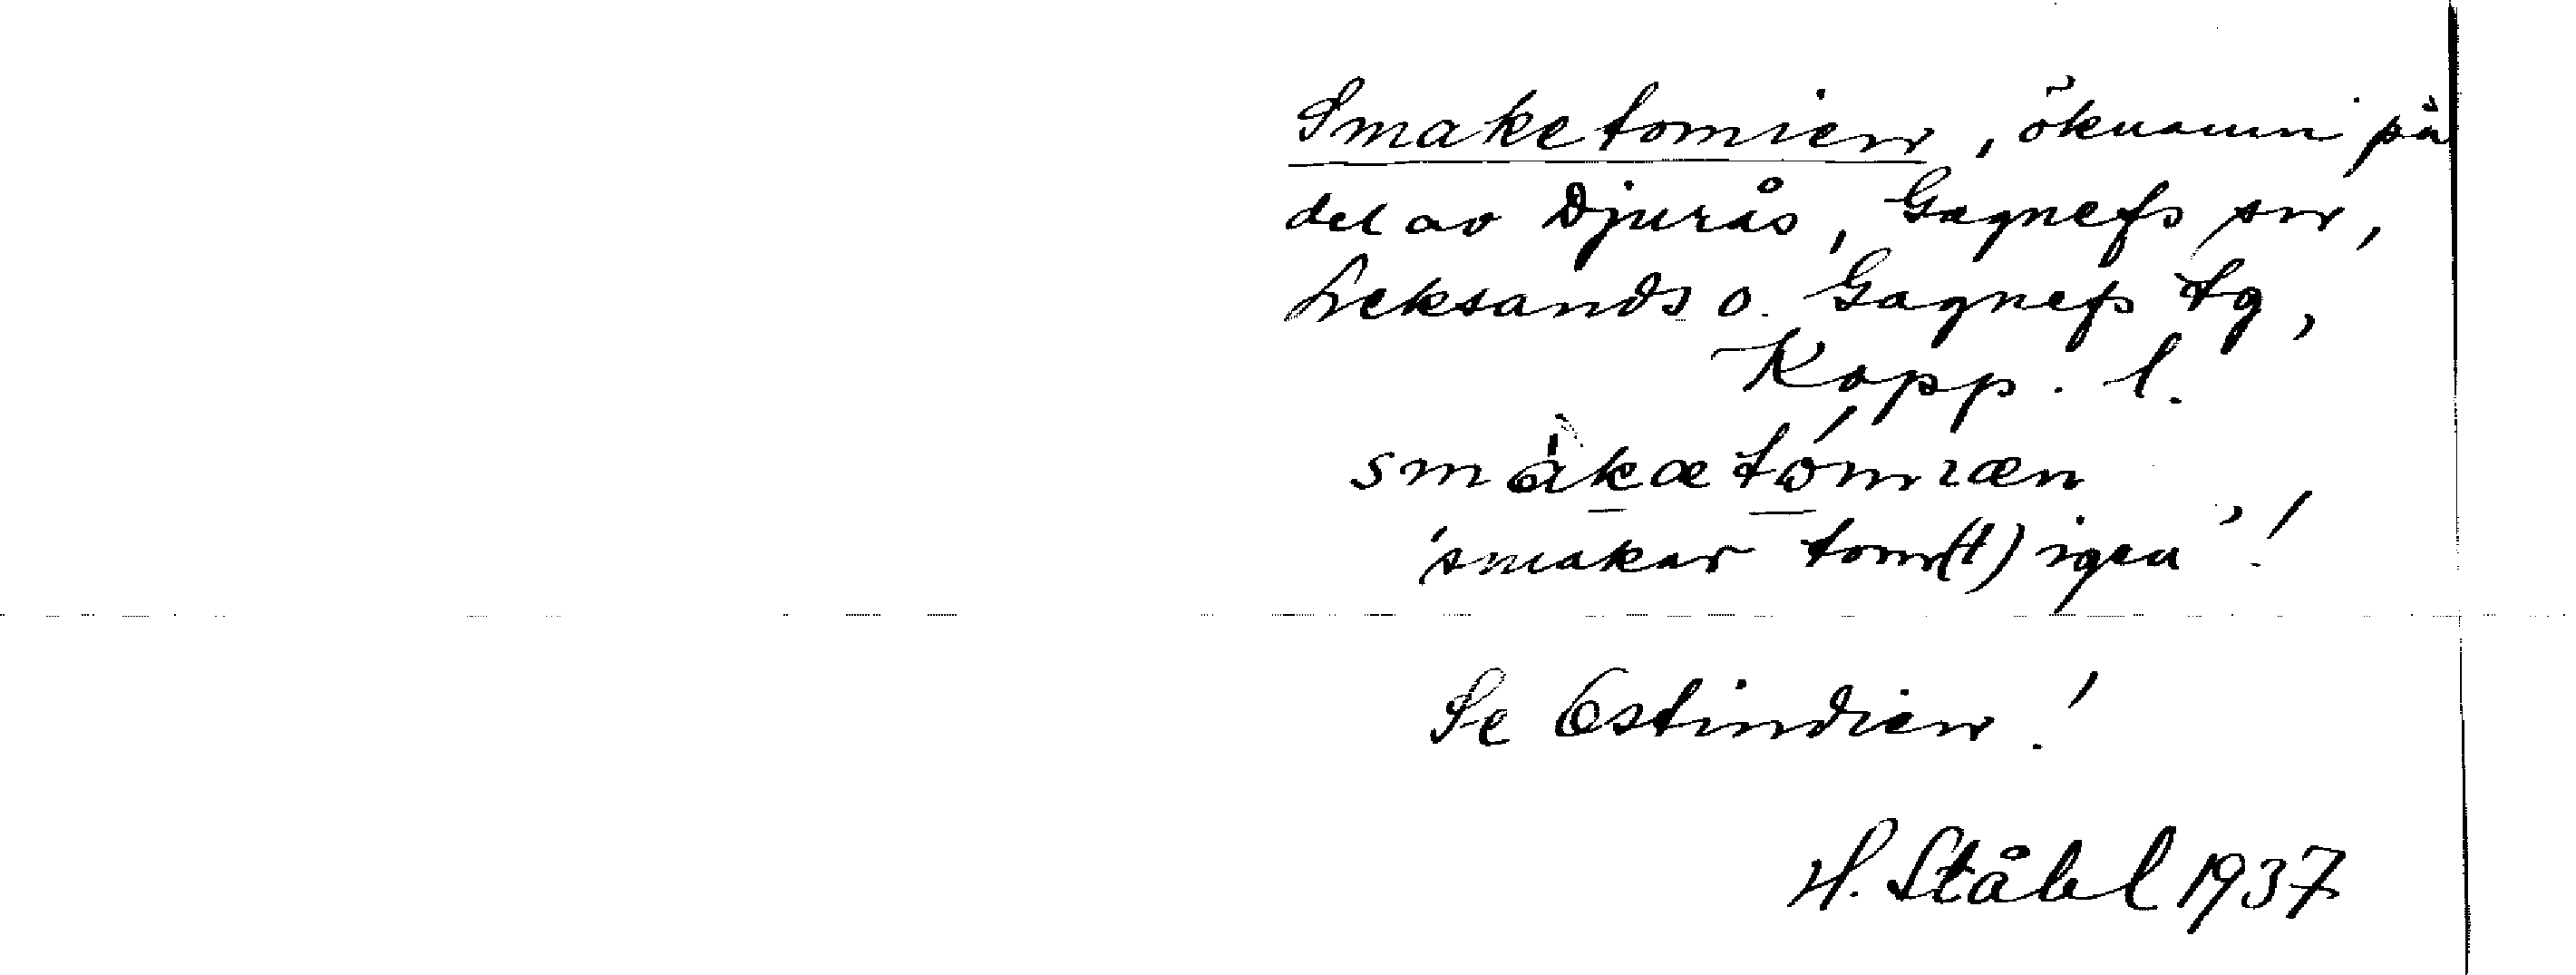 Smaketomien, öknamn på
del av Djurås, Gagnefs sn,
Leksands o. Gagnefs tg,
Kopp. l.
smàkætómıæn
'smakar tom(t) igen'!
Se Ostindien!
H. Ståhl 1937